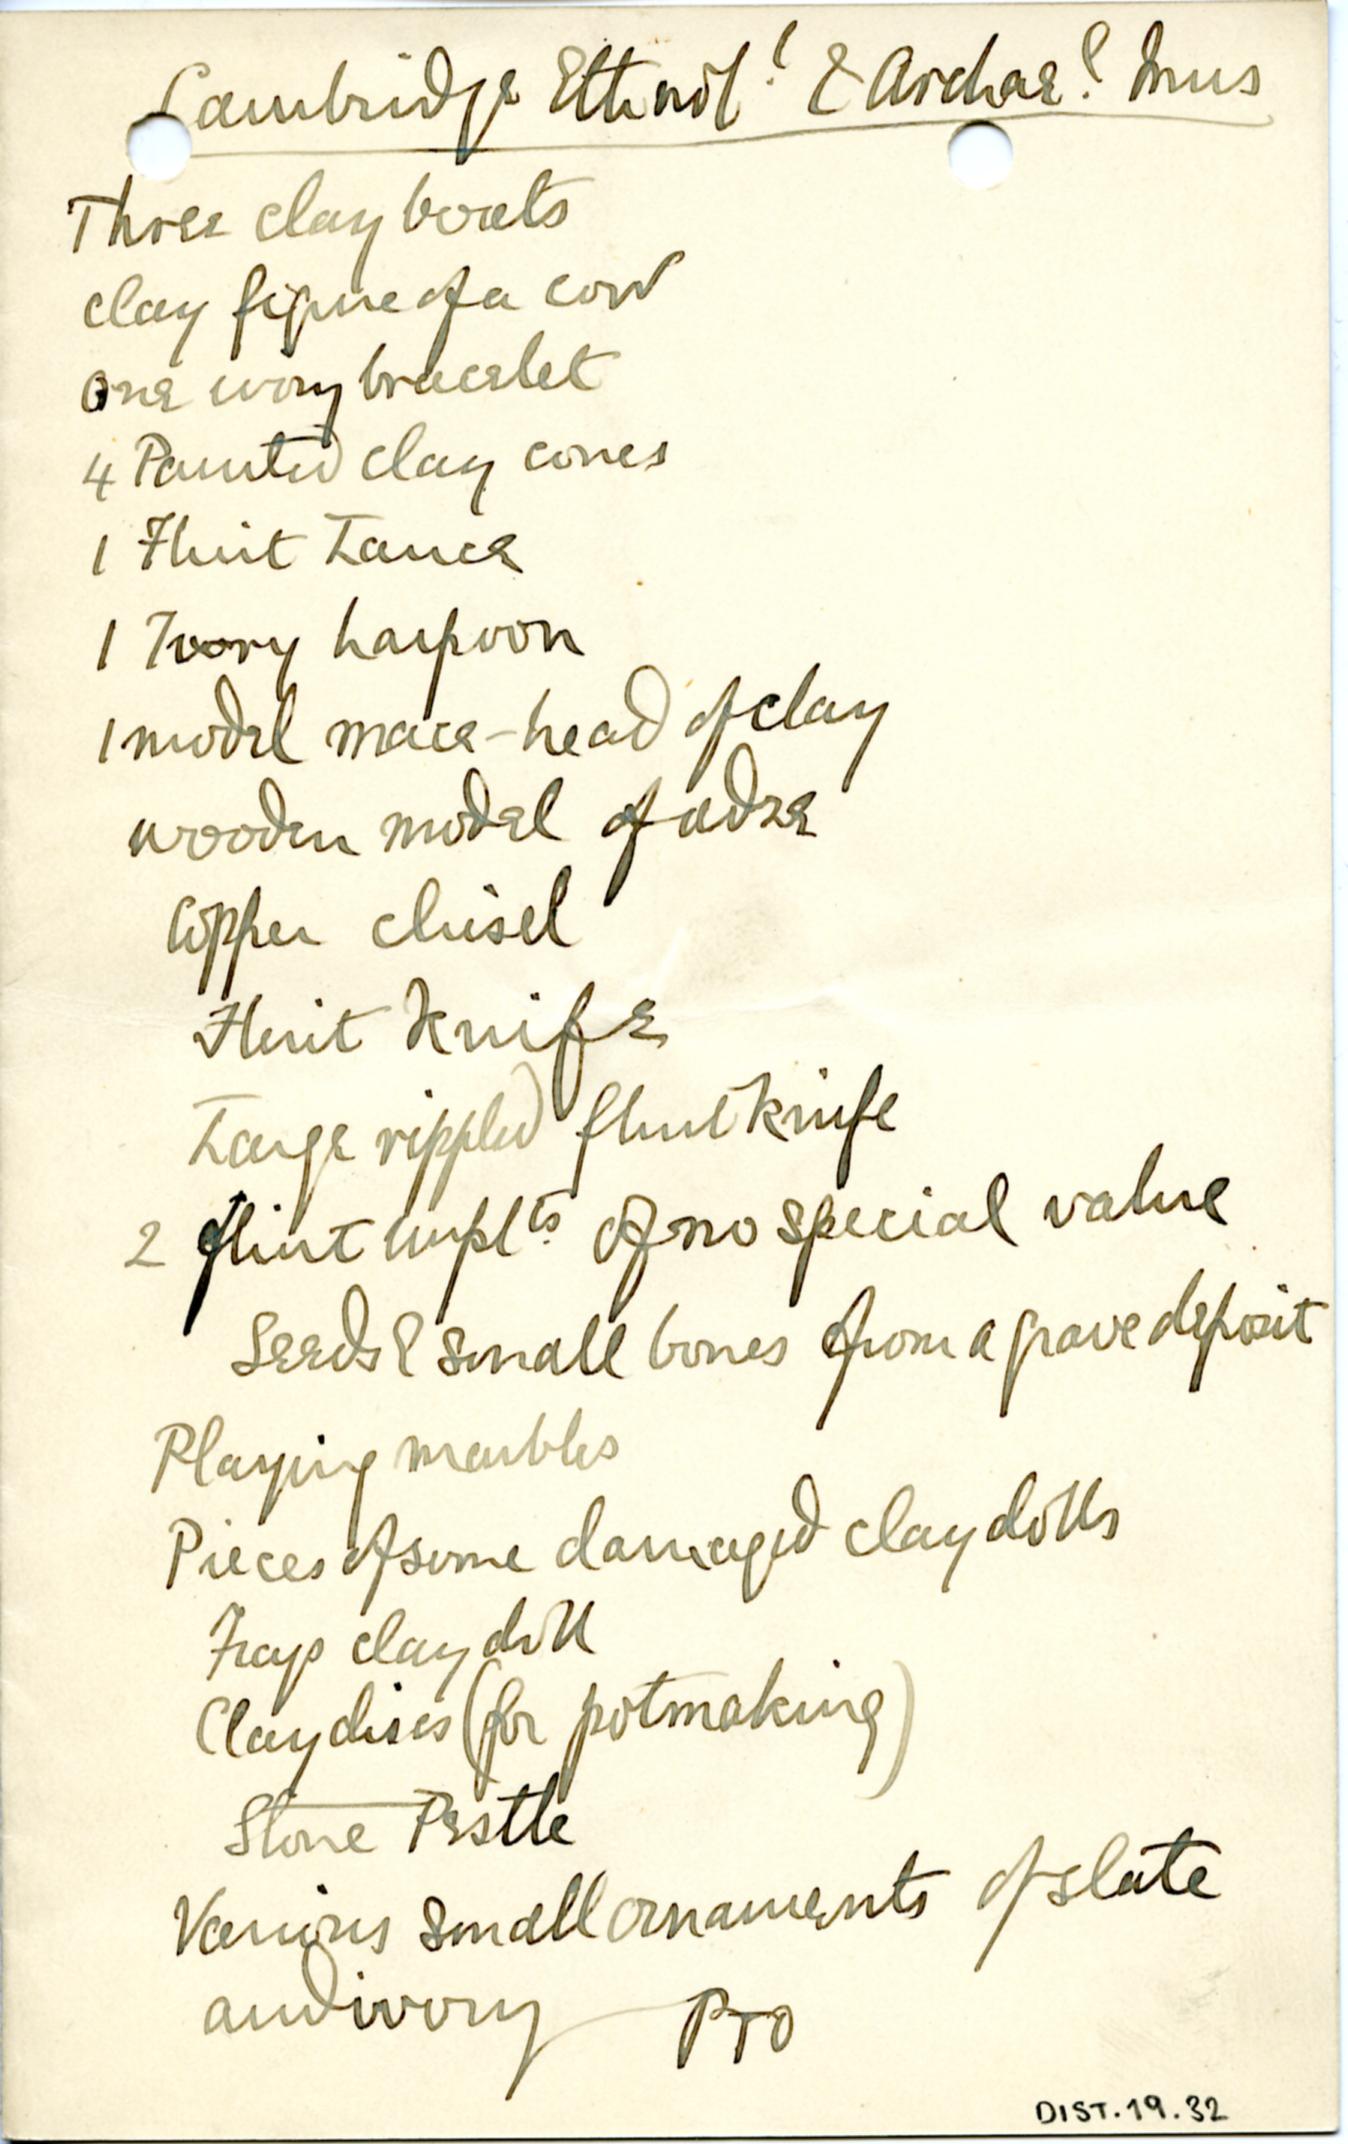 Cambridge Ethnol! & Archae! Mus
Three clay boats
clay figure of a cow
One ivory bracelet
4 Painted clay cones
1 Flint Lance
1 Ivory harpoon
1 model mace-head of clay
wooden model of adze
Copper chisel
Flint Knife
Large rippled flint knife
2 flint implts. of no special value
Seeds & small bones from a grave deposit
Playing marbles
Pieces of some damaged clay dolls
Frags clay doll
Clay discs (for potmaking)
Stone Pestle
Various small ornaments of slate
and ivory — PTO
DIST.19.32